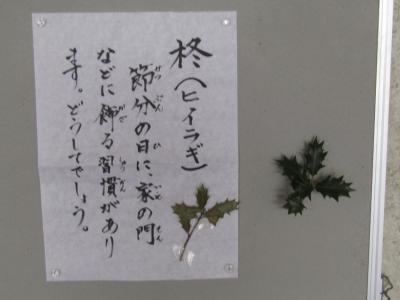 柊(ヒイラギ)
節分の日に、家の門
などに飾る習慣があり
ます。どうしてでしょう。